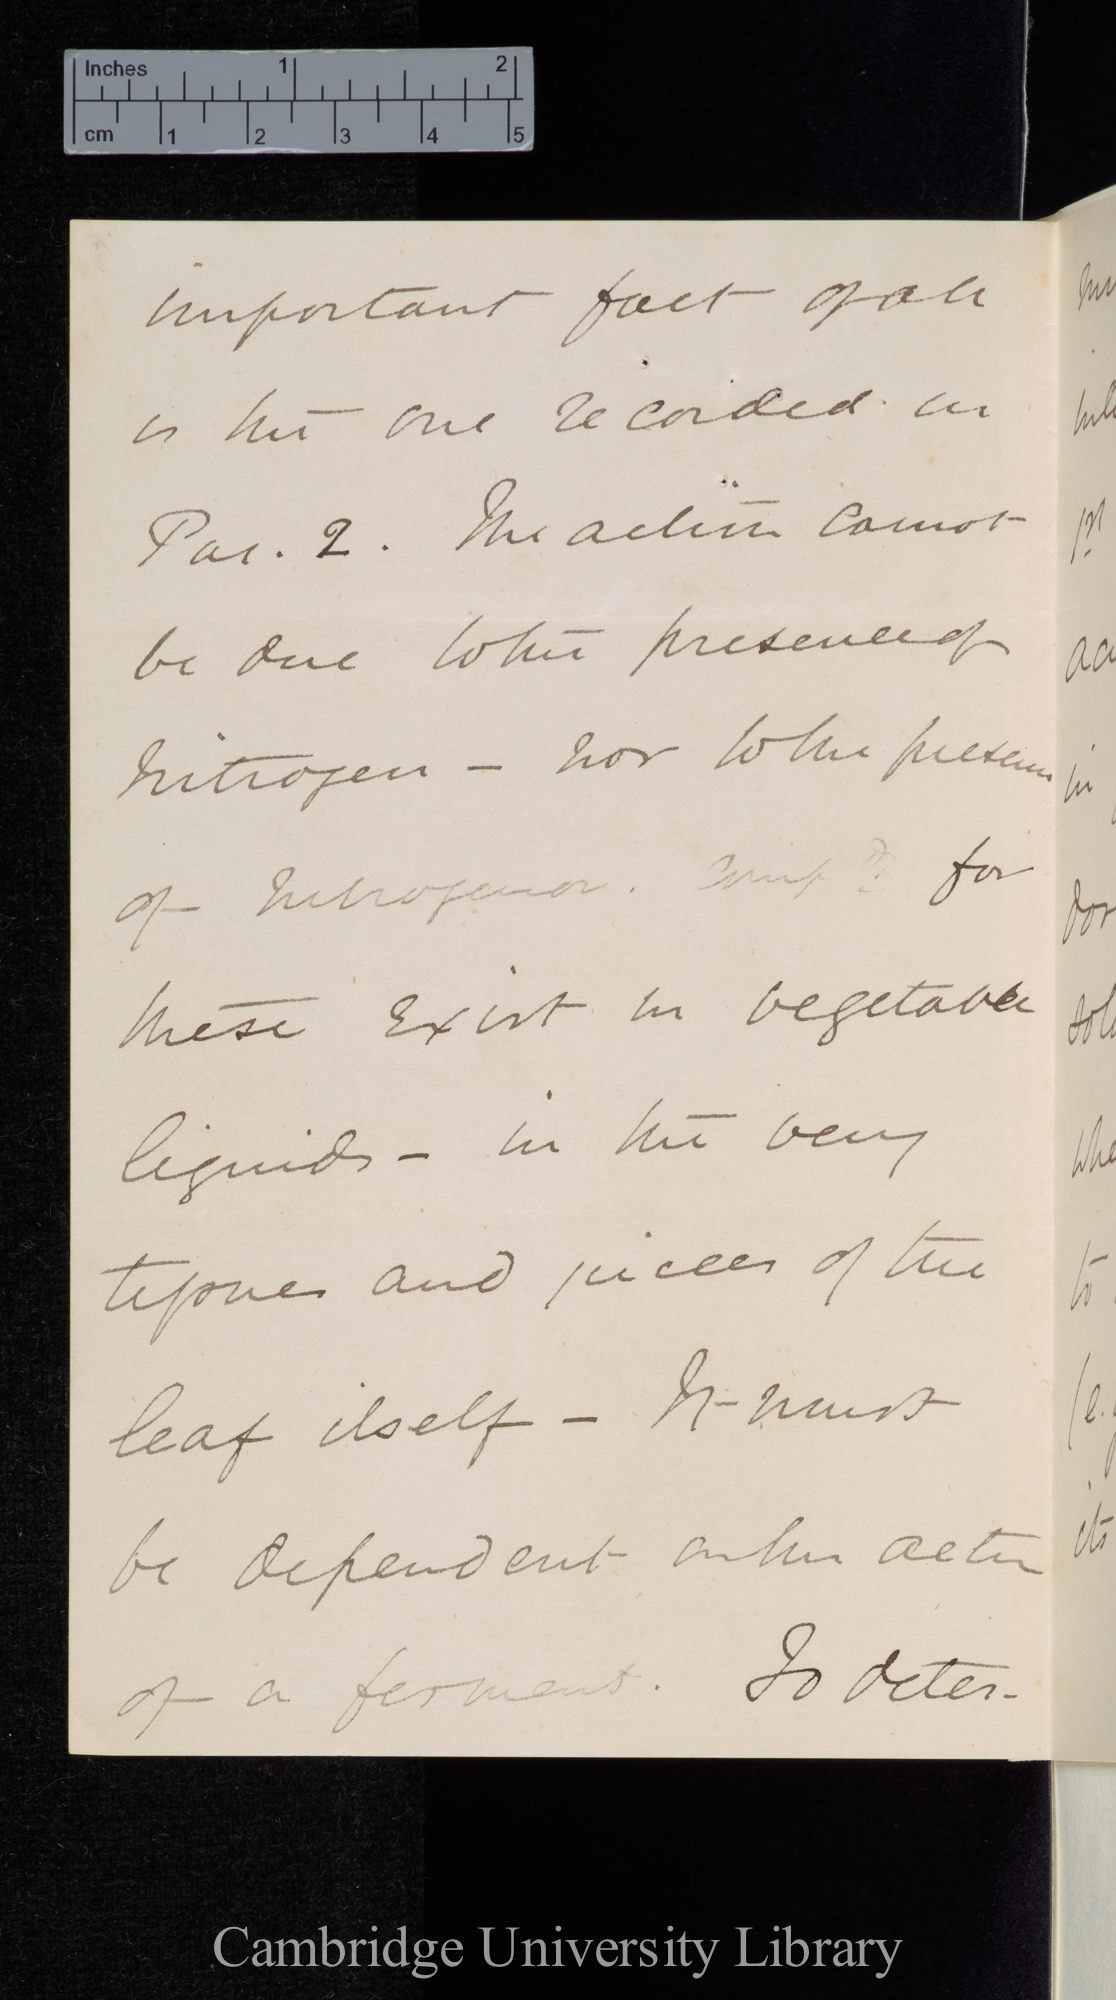 Inches 1 2
cm 1 2 3 4 5
important fact of all
is the one recorded in
Par. 2. The action cannot
be due to the presence of
Nitrogen – nor to the presence
of Nitrogenous. Comp^ds for
these exist in vegetable
liquids – in the very
tissues and juices of the
leaf itself – It must
be dependent on the action
of a ferment. To deter-
in
its
Cambridge University Library